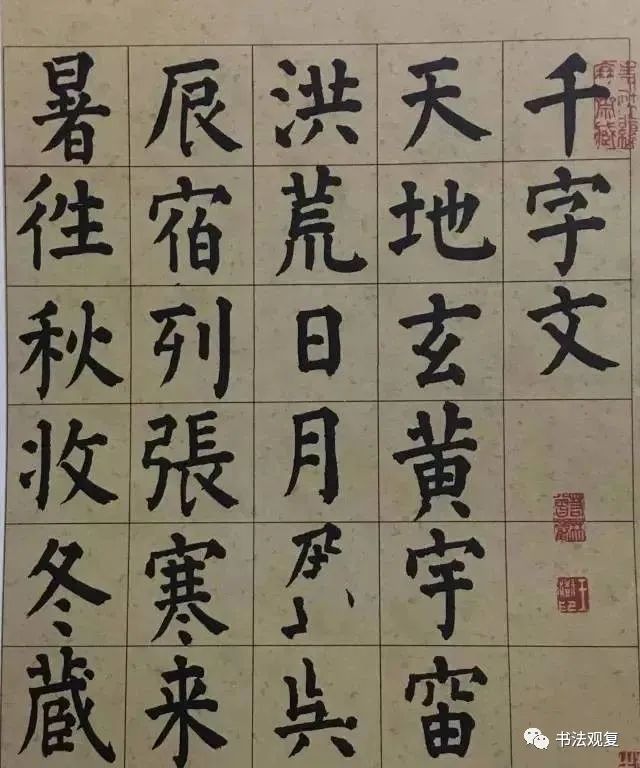 千字文
天地玄黄宇宙
洪荒日月
辰宿列張寒来
暑往秋收冬藏
书法观复